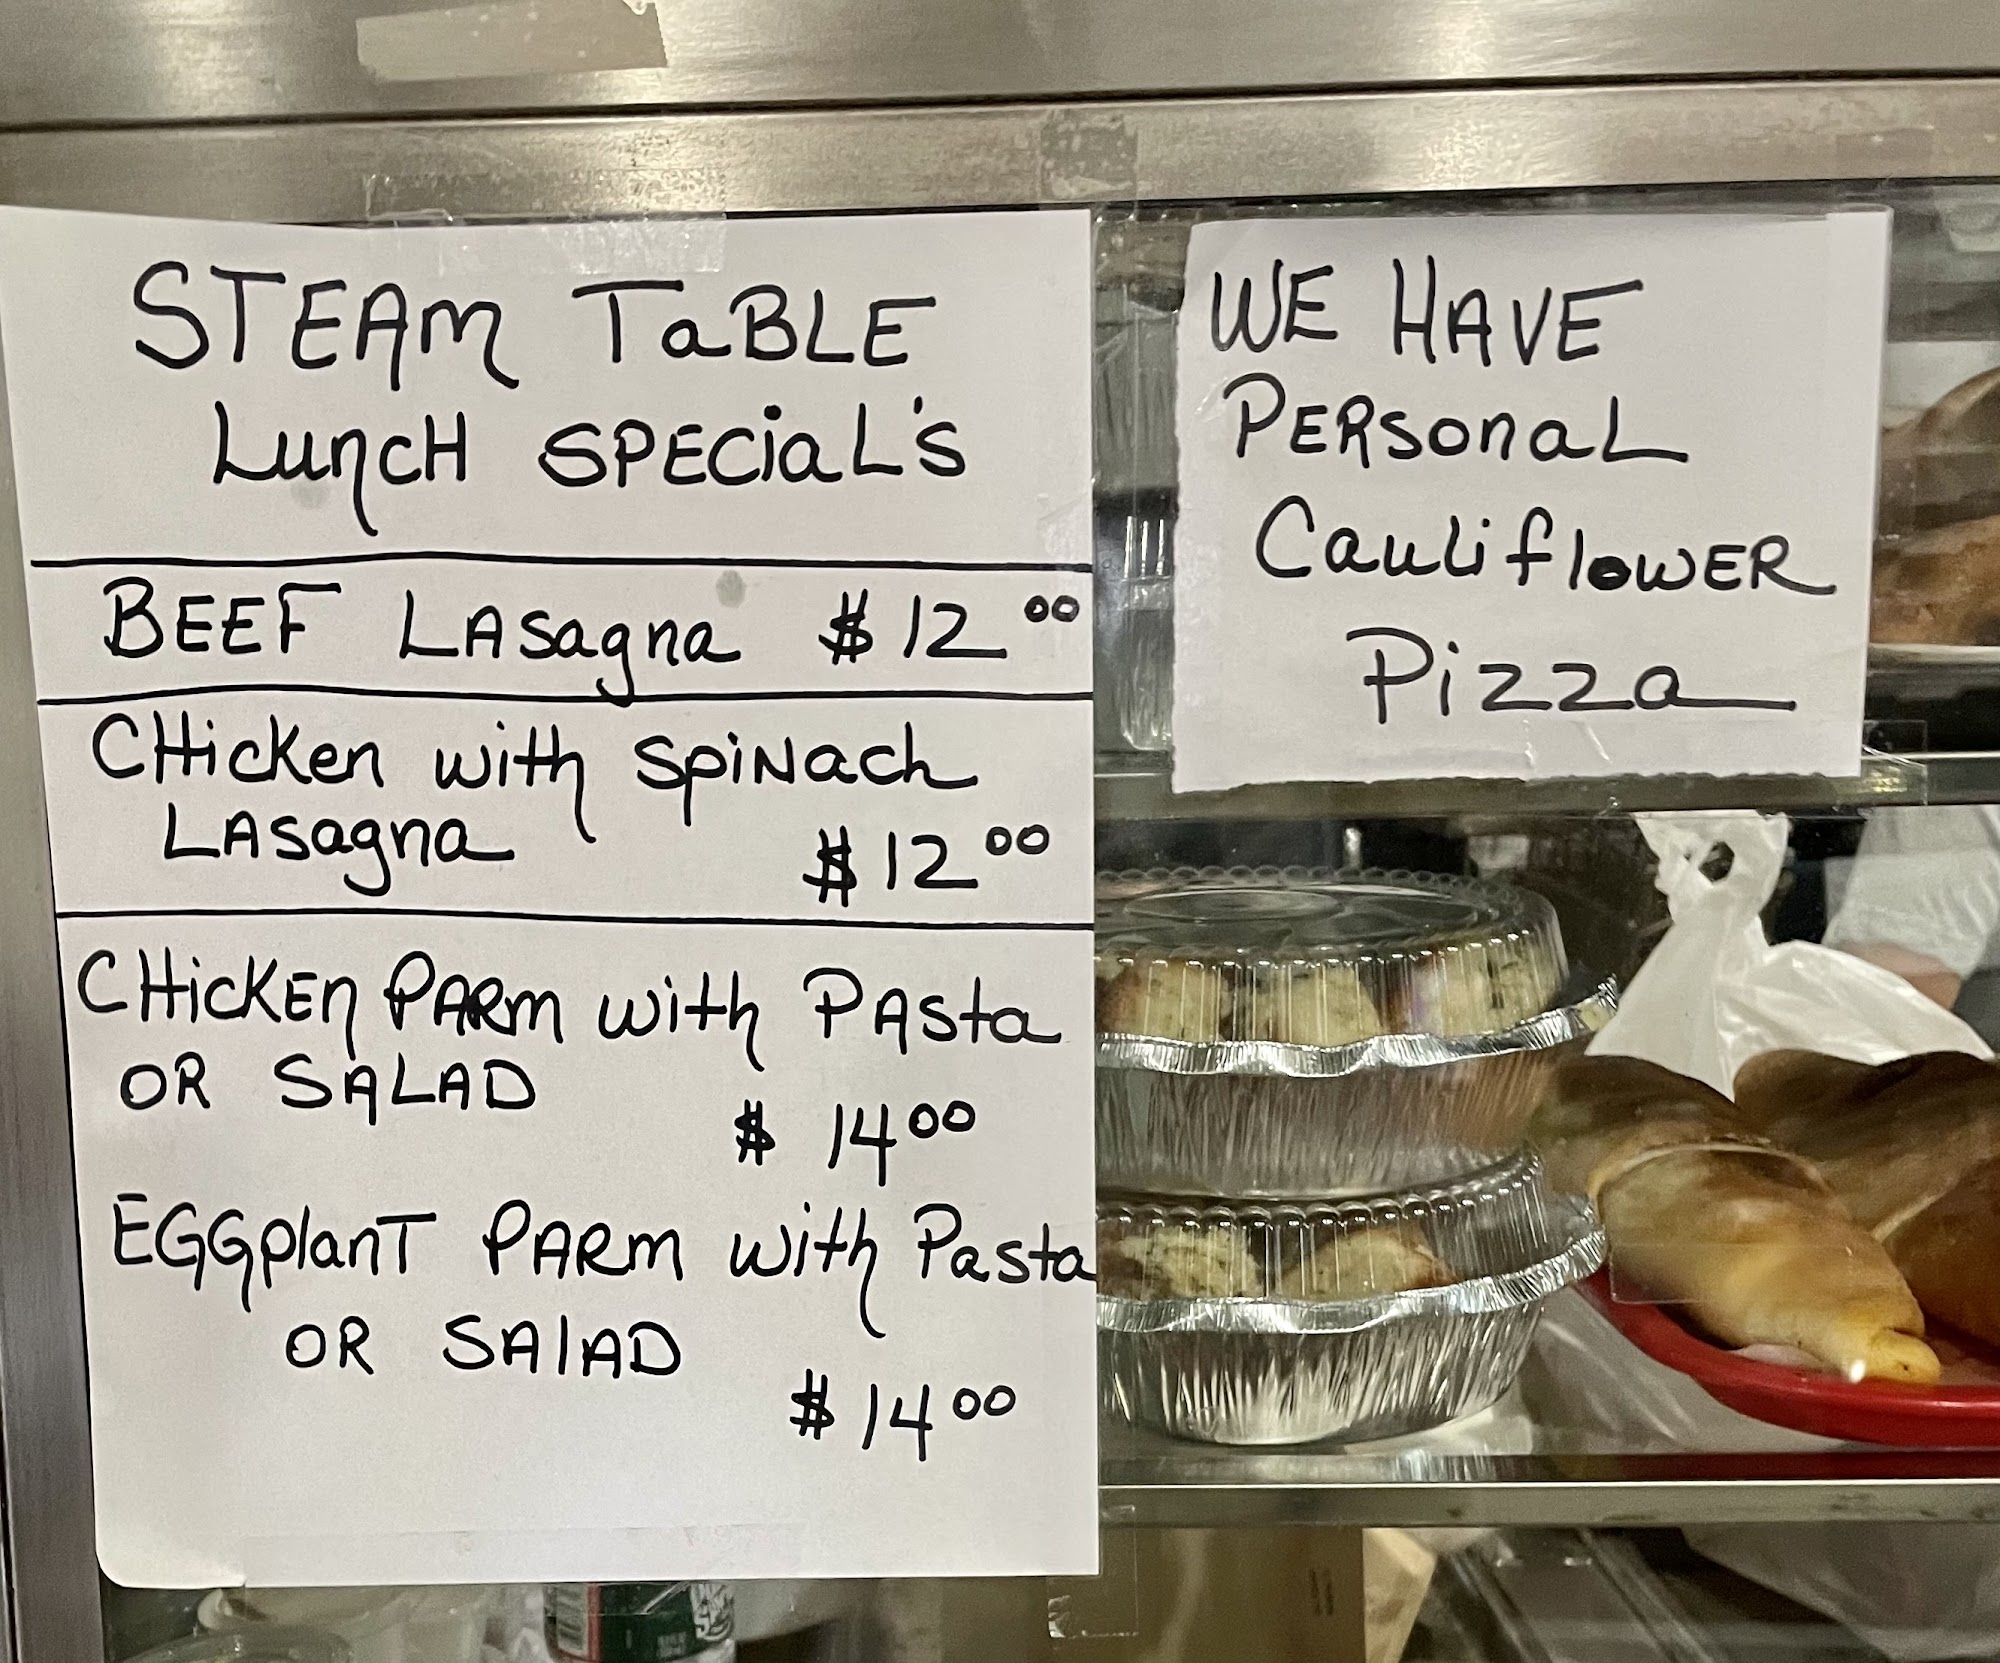 STEAM TaBLE
LuncH SPECiaL's
BEEF LASagna $12 00
CHicken with SpiNach
LASagna $12 00
CHicKEn PARm with PAsta
OR SALAD
$ 14 00
EGGplanT PARm with Pasta
OR SAlAD
$ 14 00
WE HAVE
PERSonaL
CaulifloWER
Pizza